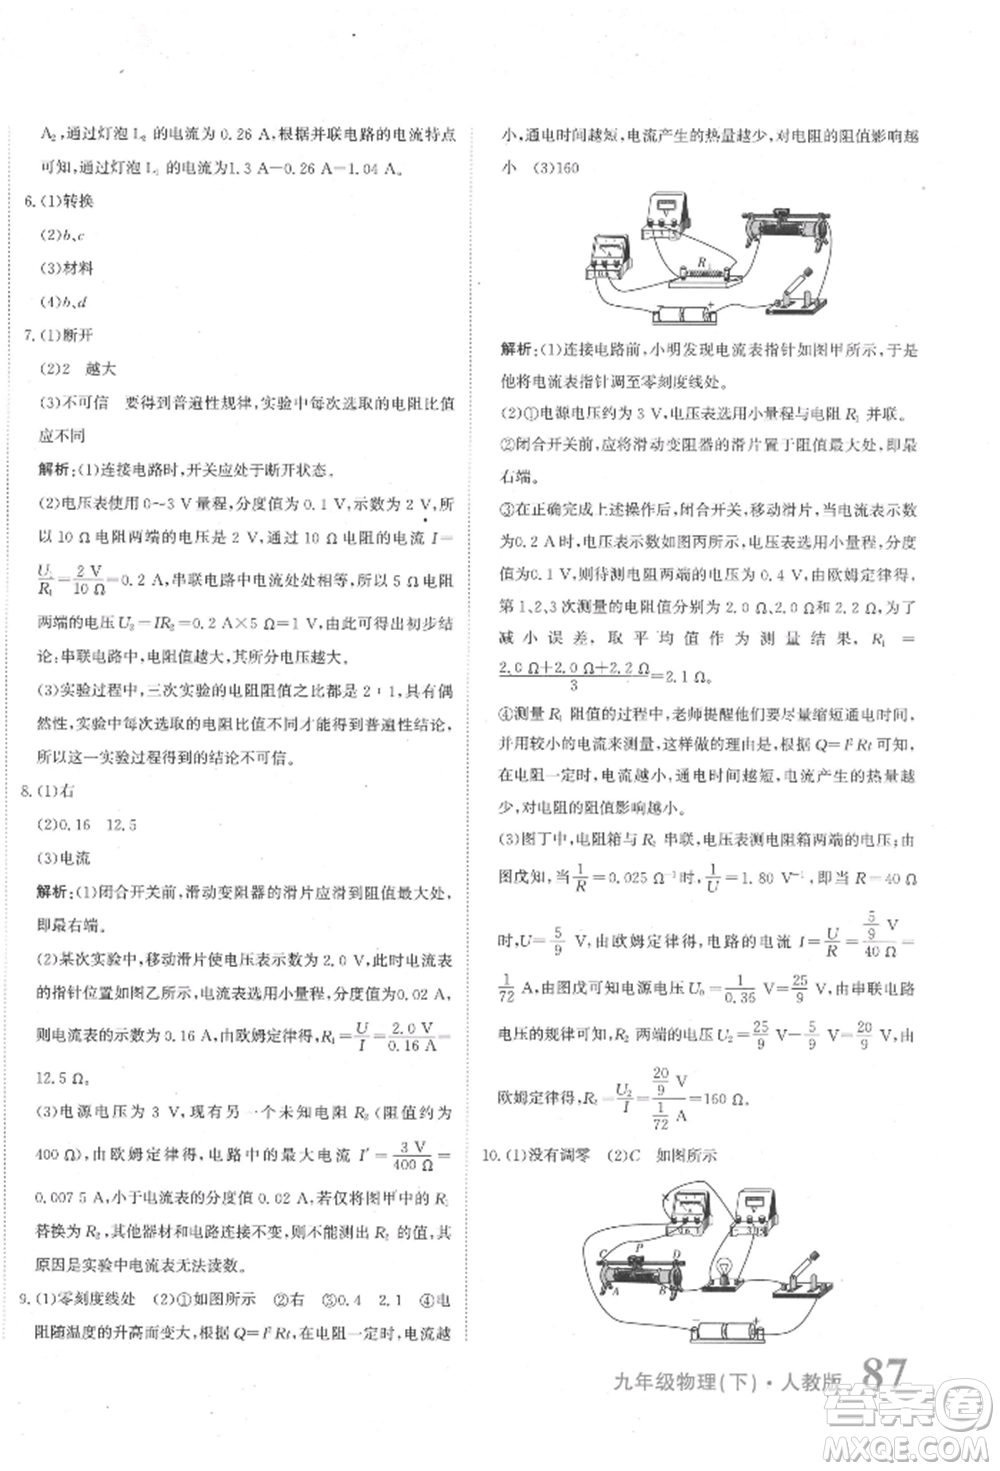 A₂,通过灯泡 L₂ 的电流为 0.26 A,根据并联电路的电流特点
可知,通过灯泡 L₁ 的电流为1.3 A－0.26 A＝1.04 A。
6. (1)转换
(2)b、c
(3)材料
(4)b、d
7. (1)断开
(2)2 越大
(3)不可信 要得到普遍性规律,实验中每次选取的电阻比值
应不同
解析:(1)连接电路时,开关应处于断开状态。
(2)电压表使用 0～3 V 量程,分度值为 0.1 V,示数为 2 V,所
以 10 Ω 电阻两端的电压是 2 V,通过该电阻的电流 I＝
U₁/R₁＝2 V/10 Ω＝0.2 A,串联电路中电流处处相等,所以 5 Ω 电阻
两端的电压 U₂＝IR₂＝0.2 A×5 Ω＝1 V;由此可得出初步结
论:串联电路中,电阻值越大,电阻两端的电压越大。
(3)实验过程中,三次实验的电阻阻值之比都是 2∶1,具有偶
然性,实验中每次选取的电阻比值不同才能得到普遍性结论,
所以这一实验过程得到的结论不可信。
8. (1)右
(2)0.16 12.5
(3)电流
解析:(1)闭合开关前,滑动变阻器的滑片应滑到阻值最大处,
即最右端。
(2)某次实验中,移动滑片使电压表示数为 2.0 V,此时电流表
的指针位置如图乙所示,电流表选用小量程,分度值为 0.02 A,
则电流表的示数为 0.16 A,由欧姆定律得,R₁＝U/I＝2.0 V/0.16 A＝
12.5 Ω。
(3)电源电压为 3 V,现有另一个未知电阻 R₂(阻值约为
400 Ω),由欧姆定律得,电路中的最大电流约 I′＝3 V/400 Ω＝
0.007 5 A,小于电流表的分度值 0.02 A,若仅将图甲中的 R₁
替换为 R₂,其他器材和电路连接不变,则不能测出 R₂ 的值,其
原因是实验中电流表无法读数。
9. (1)零刻度线处 (2)①如图所示 ②右 ③0.4 2.1 ④电
阻随温度的升高而变大,根据 Q＝I²Rt,在电阻一定时,电流越
小,通电时间越短,电流产生的热量越少,对电阻的阻值影响越
小 (3)160
R₁
解析:(1)连接电路前,小明发现电流表指针如图甲所示,于是
他将电流表指针调至零刻度线处。
(2)①电源电压约为 3 V,电压表选用小量程与电阻 R₁ 并联。
②闭合开关前,应将滑动变阻器的滑片置于阻值最大处,即最
右端。
③在正确完成上述操作后,闭合开关,移动滑片,当电流表示数
为 0.2 A 时,电压表示数如图丙所示,电压表选用小量程,分度
值为 0.1 V,则待测电阻两端的电压为 0.4 V,由欧姆定律得,
第 1、2、3 次测量的电阻值分别为 2.0 Ω、2.0 Ω 和 2.2 Ω,为了
减小误差,取平均值作为测量结果,R₁＝
2.0 Ω＋2.0 Ω＋2.2 Ω/3＝2.1 Ω。
④测量 R₁ 阻值的过程中,老师提醒他们要尽量缩短通电时间,
并用较小的电流来测量,这样做的理由是,根据 Q＝I²Rt 可知,
在电阻一定时,电流越小,通电时间越短,电流产生的热量越
少,对电阻的阻值影响越小。
(3)图丁中,电阻箱与 R₂ 串联,电压表测电阻箱两端的电压,由
图戊可知,当 1/R＝0.025 Ω⁻¹时,1/U＝1.80 V⁻¹,即当 R＝40 Ω
时,U＝5/9 V,由欧姆定律得,电路的电流 I＝U/R＝5/9 V/40 Ω＝
1/72 A,由图戊可知电源电压 U₀＝1/0.36 V＝25/9 V,由串联电路
电压的规律可知,R₂ 两端的电压 U₂＝25/9 V－5/9 V＝20/9 V,由
欧姆定律得,R₂＝U₂/I＝20/9 V/1/72 A＝160 Ω。
10. (1)没有调零 (2)C 如图所示
C P D
A B
九年级物理(下)·人教版 87
答案卷
MXQE.COM